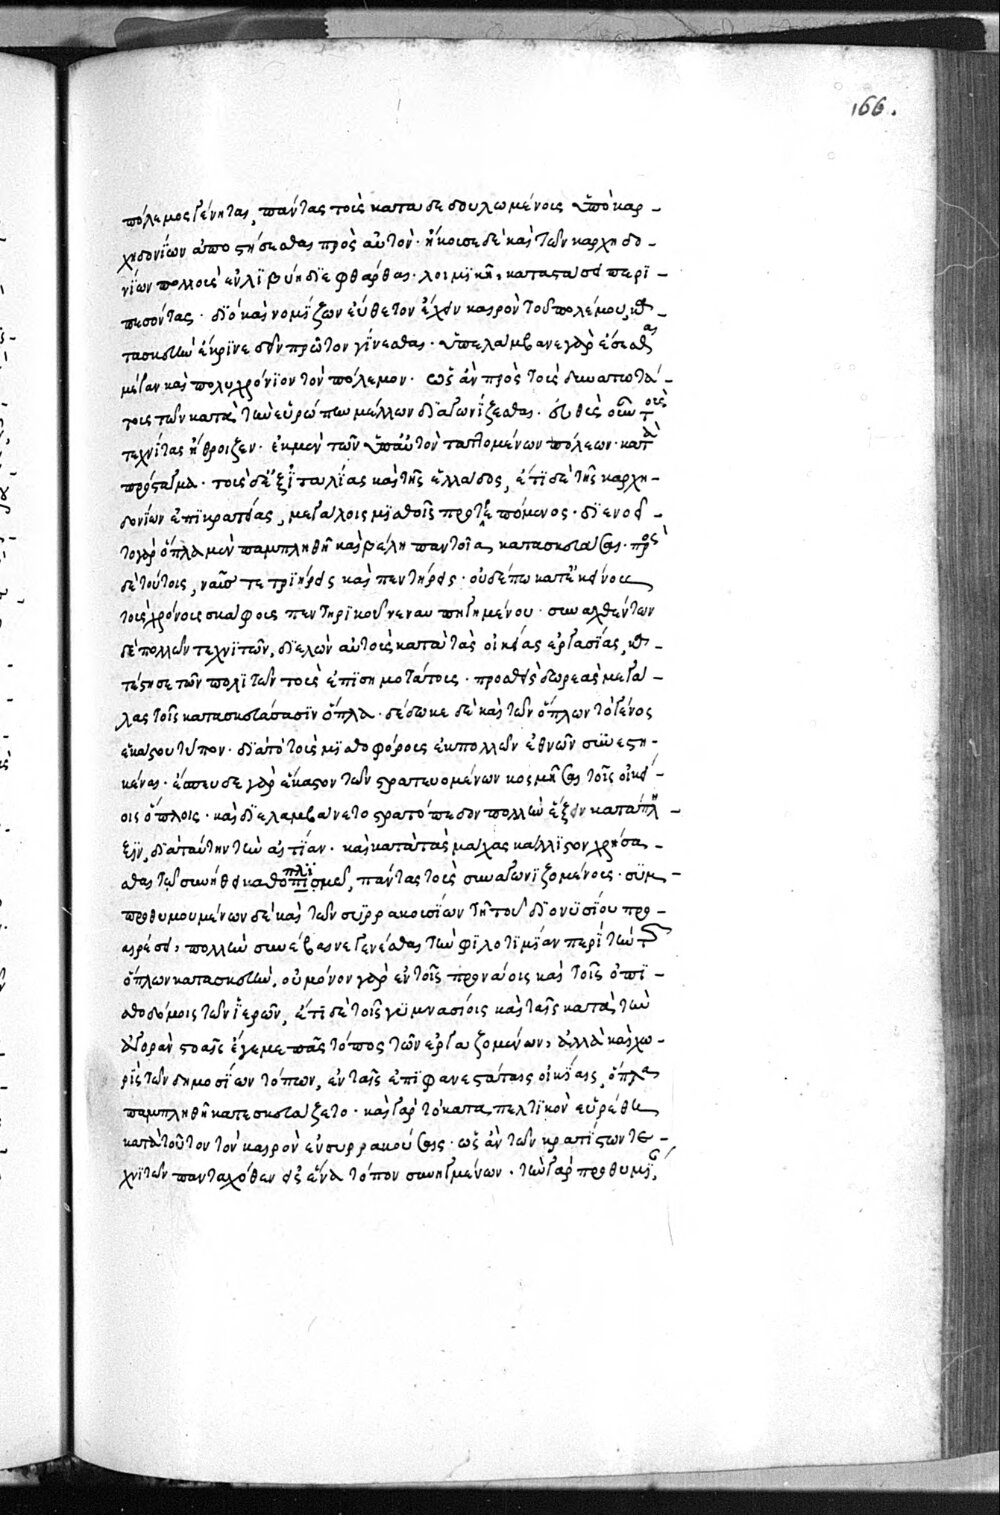 166.
πόλεμος γένηται, πάντας τοὺς καταδεδουλωμένους ὑπὸ καρ-
χηδονίων ἀποστήσεσθαι πρὸς αὐτόν· ἤκουσε δὲ καὶ τῶν καρχηδο-
νίων πολλοὺς ἐν λιβύη διεφθάρθαι· λοιμικῆ, καταστάσει περι-
πεσόντας· διὸ καὶ νομίζων εὔθετον ἔχειν καιρὸν τοῦ πολέμου, κα-
τασκευὴν ἔκρινε δεῖν πρῶτον γίνεσθαι· ὑπελάμβανε γὰρ ἔσεσθαι
μέγαν καὶ πολυχρόνιον τὸν πόλεμον· ὡς ἂν πρὸς τοὺς δυνατωτά-
τους τῶν κατὰ τὴν εὐρώπην μέλλων διαγωνίζεσθαι· εὐθὺς οὖν τοὺς
τεχνίτας ἤθροιζεν· ἐκ μὲν τῶν ὑπ' αὐτὸν ταττομένων πόλεων· κατὰ
πρόσταγμα· τοὺς δ' ἐξ ἰταλίας καὶ τῆς ἑλλάδος, ἔτι δὲ τῆς καρχη-
δονίων ἐπικρατείας, μεγάλοις μισθοῖς προτρεπόμενος· διενοεῖ-
το γὰρ ὅπλα μὲν παμπληθῆ καὶ βέλη παντοῖα κατασκευάσαι· πρὸς
δὲ τούτοις, ναῦς τε τριήρεις καὶ πεντήρεις· οὐδέπω κατ' ἐκείνους
τοὺς χρόνους σκάφους πεντηρικοῦ νεναυπηγημένου· συναχθέντων
δὲ πολλῶν τεχνιτῶν, διελὼν αὐτοὺς κατὰ τὰς οἰκείας ἐργασίας, κα-
τέστησε τῶν πολιτῶν τοὺς ἐπισημοτάτους· προθεὶς δωρεὰς μεγά-
λας τοῖς κατασκευάσασιν ὅπλα· δέδωκε δὲ καὶ τῶν ὅπλων τὸ γένος
ἑκάστου τύπον· διὰ τὸ τοὺς μισθοφόρους ἐκ πολλῶν ἐθνῶν συνεστη-
κέναι· ἔσπευδε γὰρ ἕκαστον τῶν στρατευομένων κοσμῆσαι τοῖς οἰκεί-
οις ὅπλοις· καὶ διελάμβανε τὸ στρατόπεδον πολλὴν ἕξειν κατάπλη-
ξιν, διὰ ταύτην τὴν αἰτίαν· καὶ κατὰ τὰς μάχας κάλλιστον χρήσα-
σθαι τῶ συνήθει καθοπλισμῶ, πάντας τοὺς συναγωνιζομένους· συμ-
προθυμουμένων δὲ καὶ τῶν συρρακουσίων τῆ τοῦ διονυσίου προ-
αιρέσει, πολλὴν συνέβαινε γενέσθαι τὴν φιλοτιμίαν περὶ τὴν τ
ὅπλων κατασκευήν, οὐ μόνον γὰρ ἐν τοῖς προνάοις καὶ τοῖς ὀπι-
σθοδόμοις τῶν ἱερῶν, ἔτι δὲ τοῖς γυμνασίοις καὶ ταῖς κατὰ τὴν
ἀγορὰν στοαῖς ἔγεμε πᾶς τόπος τῶν ἐργαζομένων, ἀλλὰ καὶ χω-
ρὶς τῶν δημοσίων τόπων, ἐν ταῖς ἐπιφανεστάταις οἰκίαις, ὅπλα
παμπληθῆ κατεσκευάζετο· καὶ γὰρ τὸ καταπελτικὸν εὑρέθη
κατὰ τοῦτον τὸν καιρὸν ἐν συρρακούσαις· ὡς ἂν τῶν κρατίστων τε-
χνιτῶν πανταχόθεν εἰς ἕνα τόπον συνηγμένων· τὴν γὰρ προθυμί